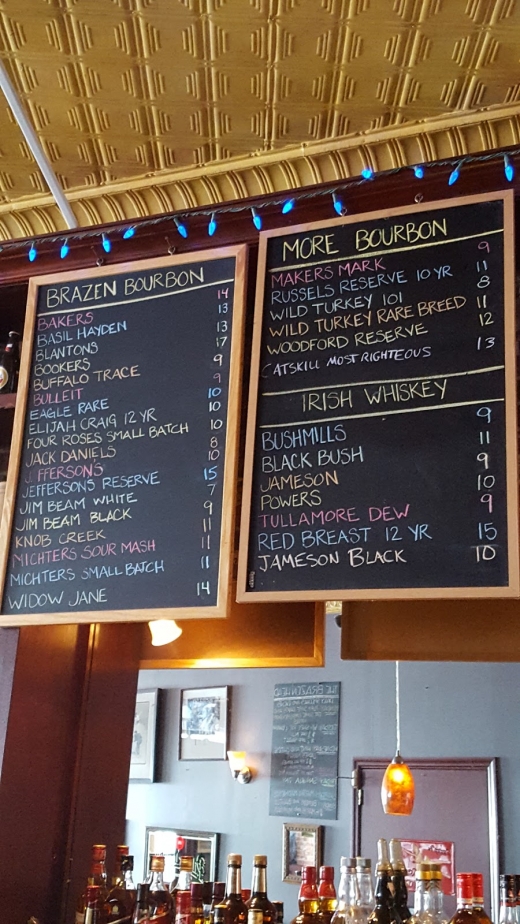 BRAZEN BOURBON
BAKERS 14
BASIL HAYDEN 13
BLANTONS 13
BOOKERS 17
BUFFALO TRACE 9
BULLEIT 9
EAGLE RARE 10
ELIJAH CRAIG 12 YR 10
FOUR ROSES SMALL BATCH 10
JACK DANIELS 8
JEFFERSONS 10
JEFFERSONS RESERVE 15
JIM BEAM WHITE 7
JIM BEAM BLACK 9
KNOB CREEK 11
MICHTERS SOUR MASH 11
MICHTERS SMALL BATCH 11
WIDOW JANE 14
MORE BOURBON
MAKERS MARK 9
RUSSELS RESERVE 10 YR 11
WILD TURKEY 101 8
WILD TURKEY RARE BREED 11
WOODFORD RESERVE 12
CATSKILL MOST RIGHTEOUS 13
IRISH WHISKEY
BUSHMILLS 9
BLACK BUSH 11
JAMESON 9
POWERS 10
TULLAMORE DEW 9
RED BREAST 12 YR 15
JAMESON BLACK 10